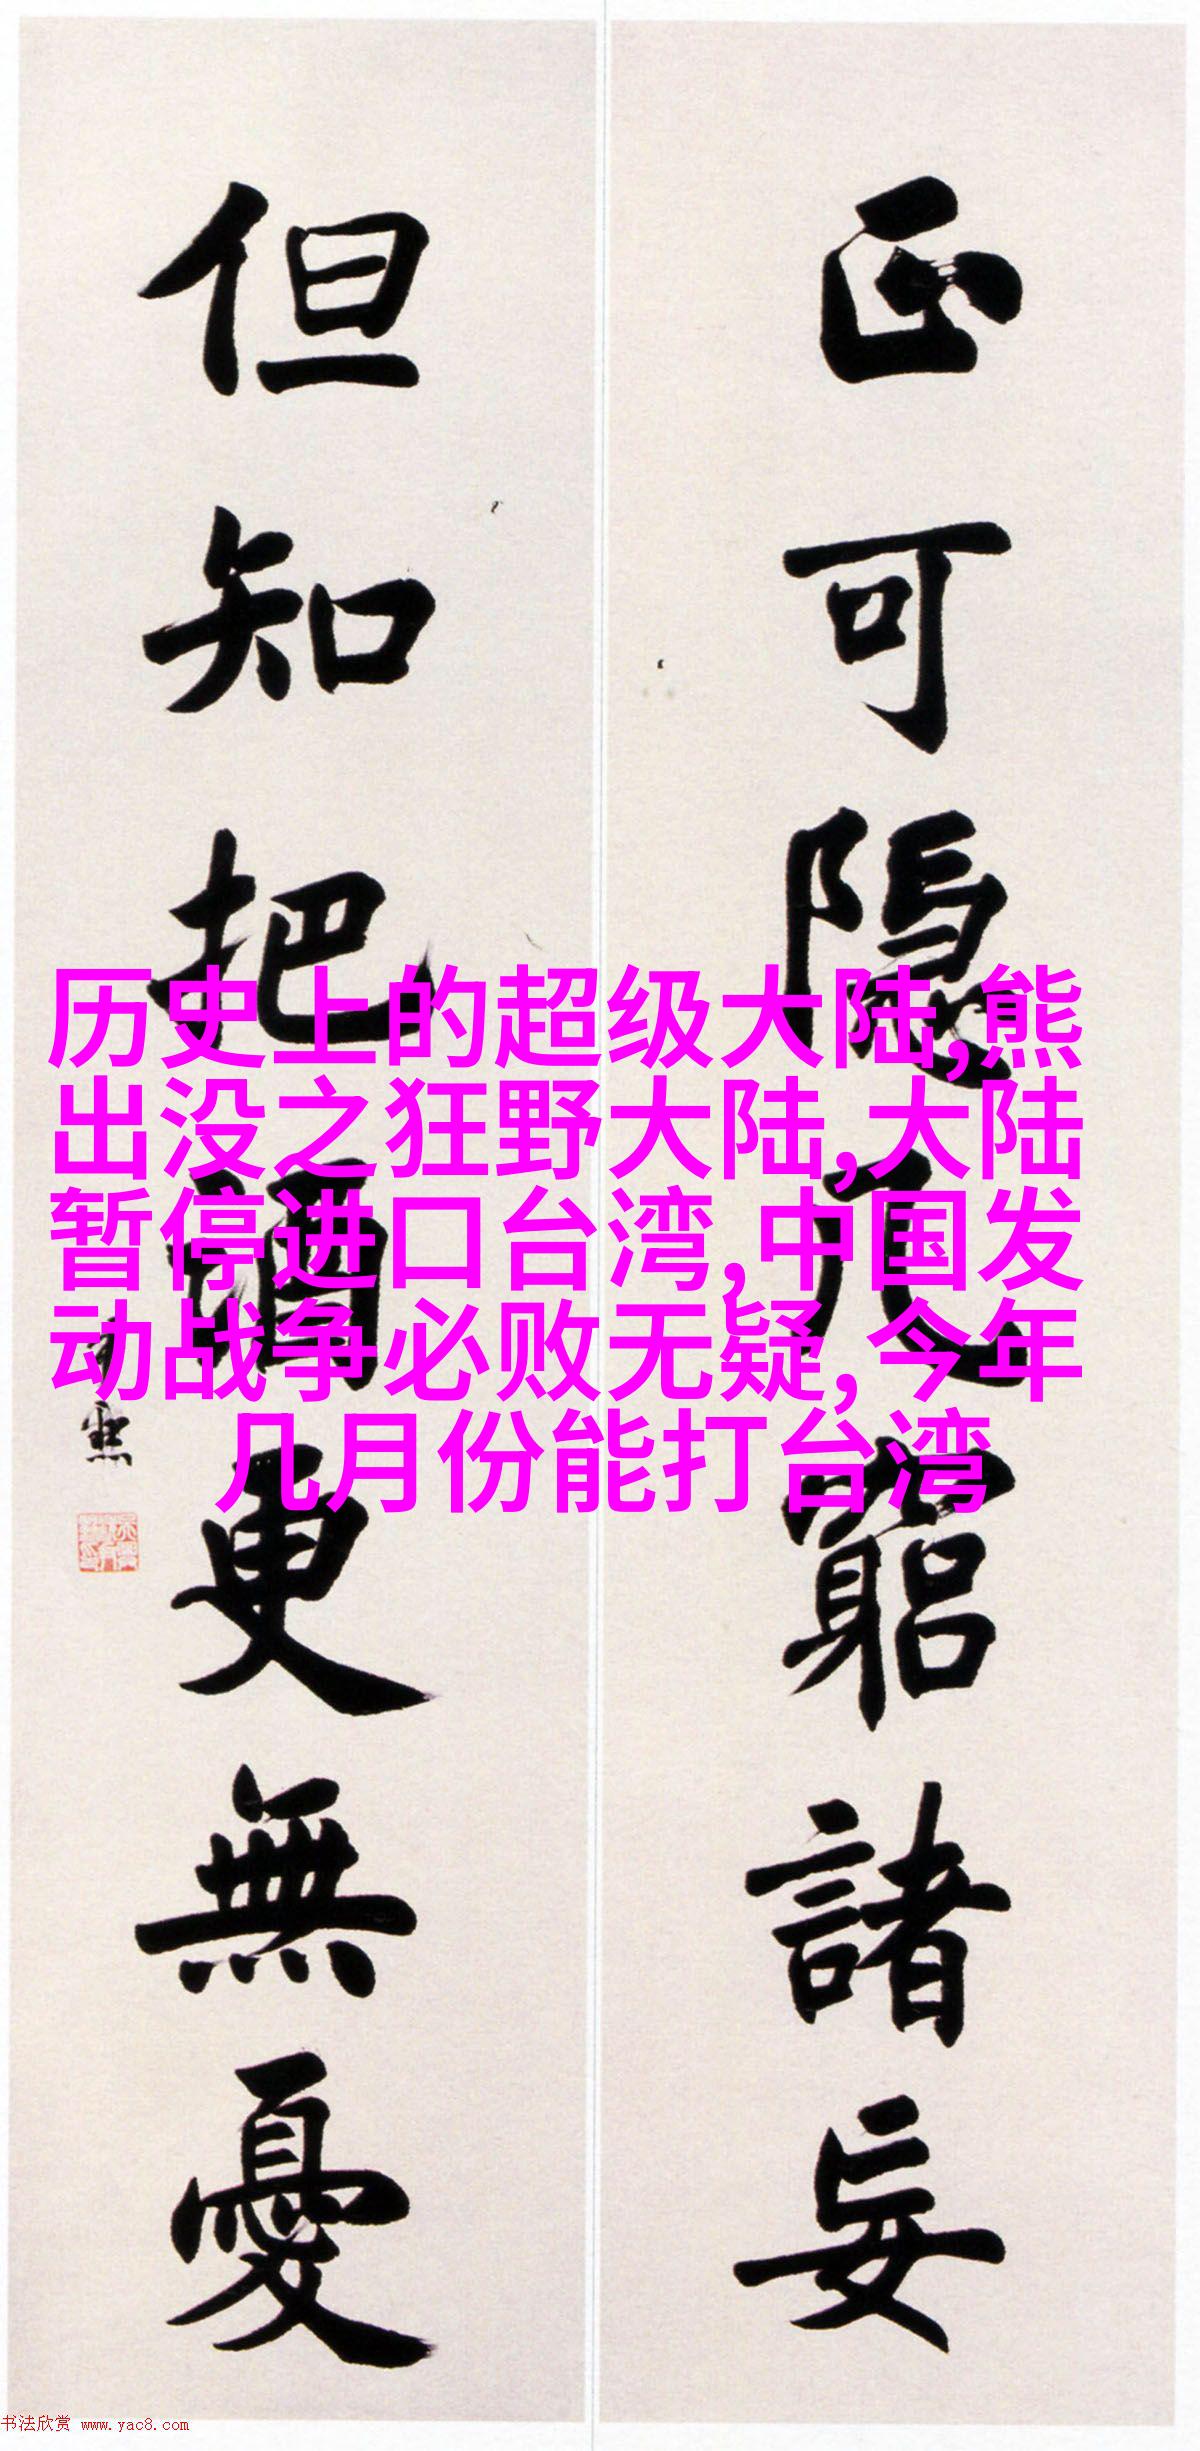 正可隐几窮諸妄
但知把酒更無憂
历史上的超级大陆,熊
出没之狂野大陆,大陆
暂停进口台湾,中国发
动战争必败无疑,今年
几月份能打台湾
书法欣赏 www.yac8.com